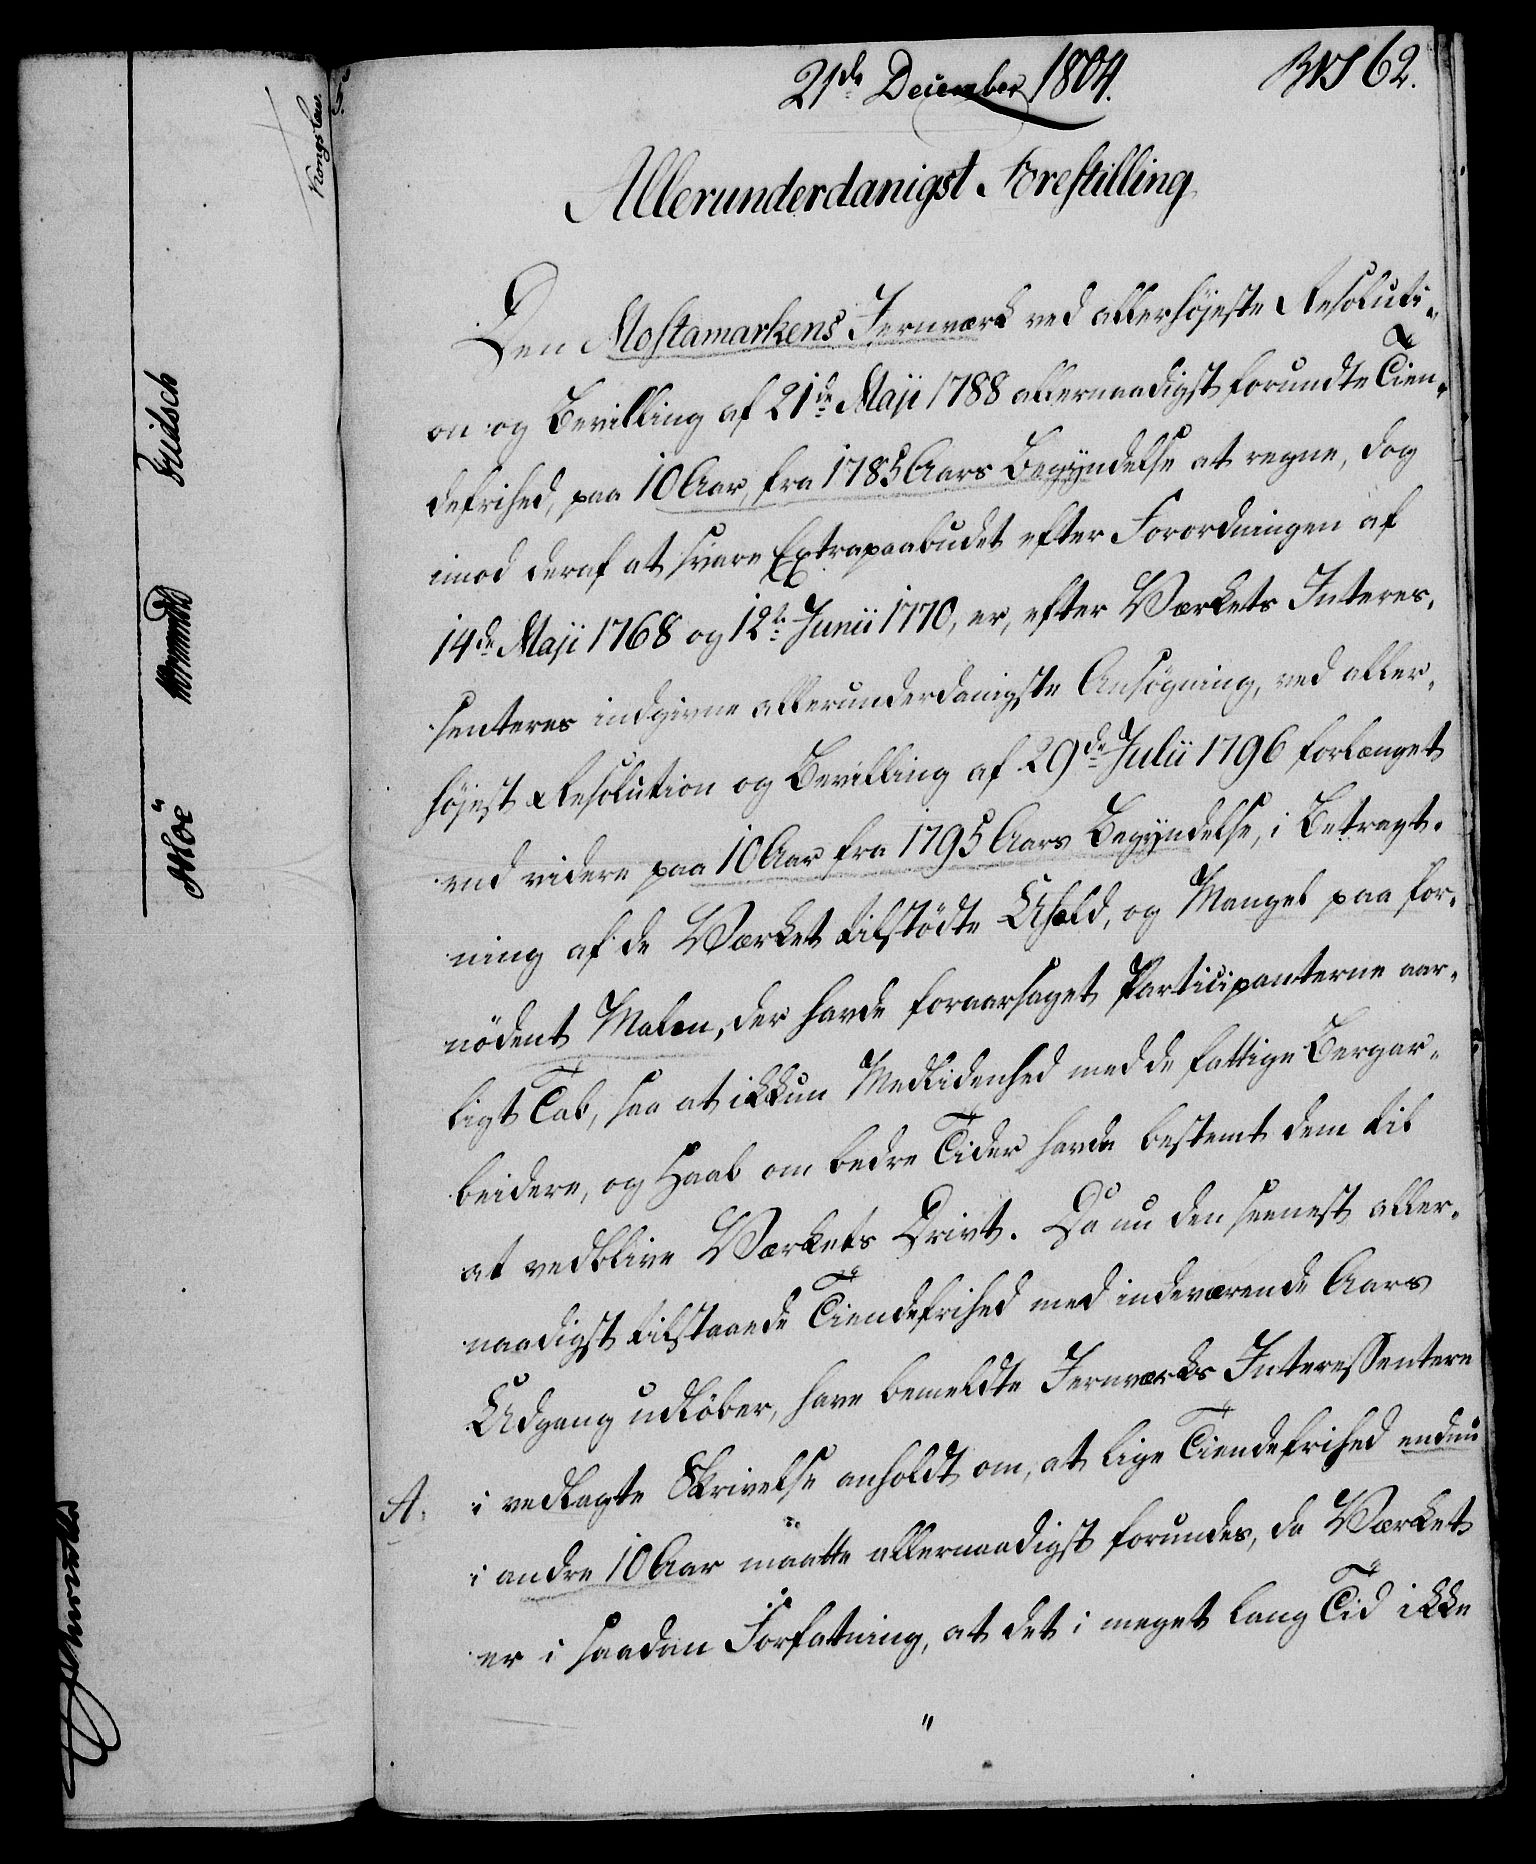 21de December 1804.
No 62.
Allerunderdanigst Forestilling
Den Mostamarkens Jernværk ved allerhøjeste Resoluti-
on og Bevilling af 21de Maji 1788 allernaadigst forundte Tien-
defrihed, paa 10 Aar, fra 1785 Aars Begyndelse at regne, dog
imod deraf at svare Extrapaabudet efter Forordningen af
14de Maji 1768 og 12te Junii 1770, er, efter Værkets Interes-
senteres indgivne allerunderdanigste Ansøgning, ved aller-
højest Resolution og Bevilling af 29de Julii 1796 forlænget
end videre paa 10 Aar fra 1795 Aars Begyndelse, i Betragt-
ning af de Værket tilstødte Uheld, og Mangel paa for-
nødent Malm, der havde foraarsaget Participanterne aar-
ligt Tab, saa at ikkun Medlidenhed med de fattige Bergar-
beidere, og Haab om bedre Tider havde bestemt dem til
at vedblive Værkets Drivt. Da nu den seenest aller-
naadigst tilstaaede Tiendefrihed med indeværende Aars
Udgang udløber, have bemeldte Jernværks Interessentere
A. i vedlagte Skrivelse anholdt om, at lige Tiendefrihed endnu
i andre 10 Aar maatte allernaadigst forundes, da Værket
er i saadan Forfatning, at det i meget lang Tid ikke
"